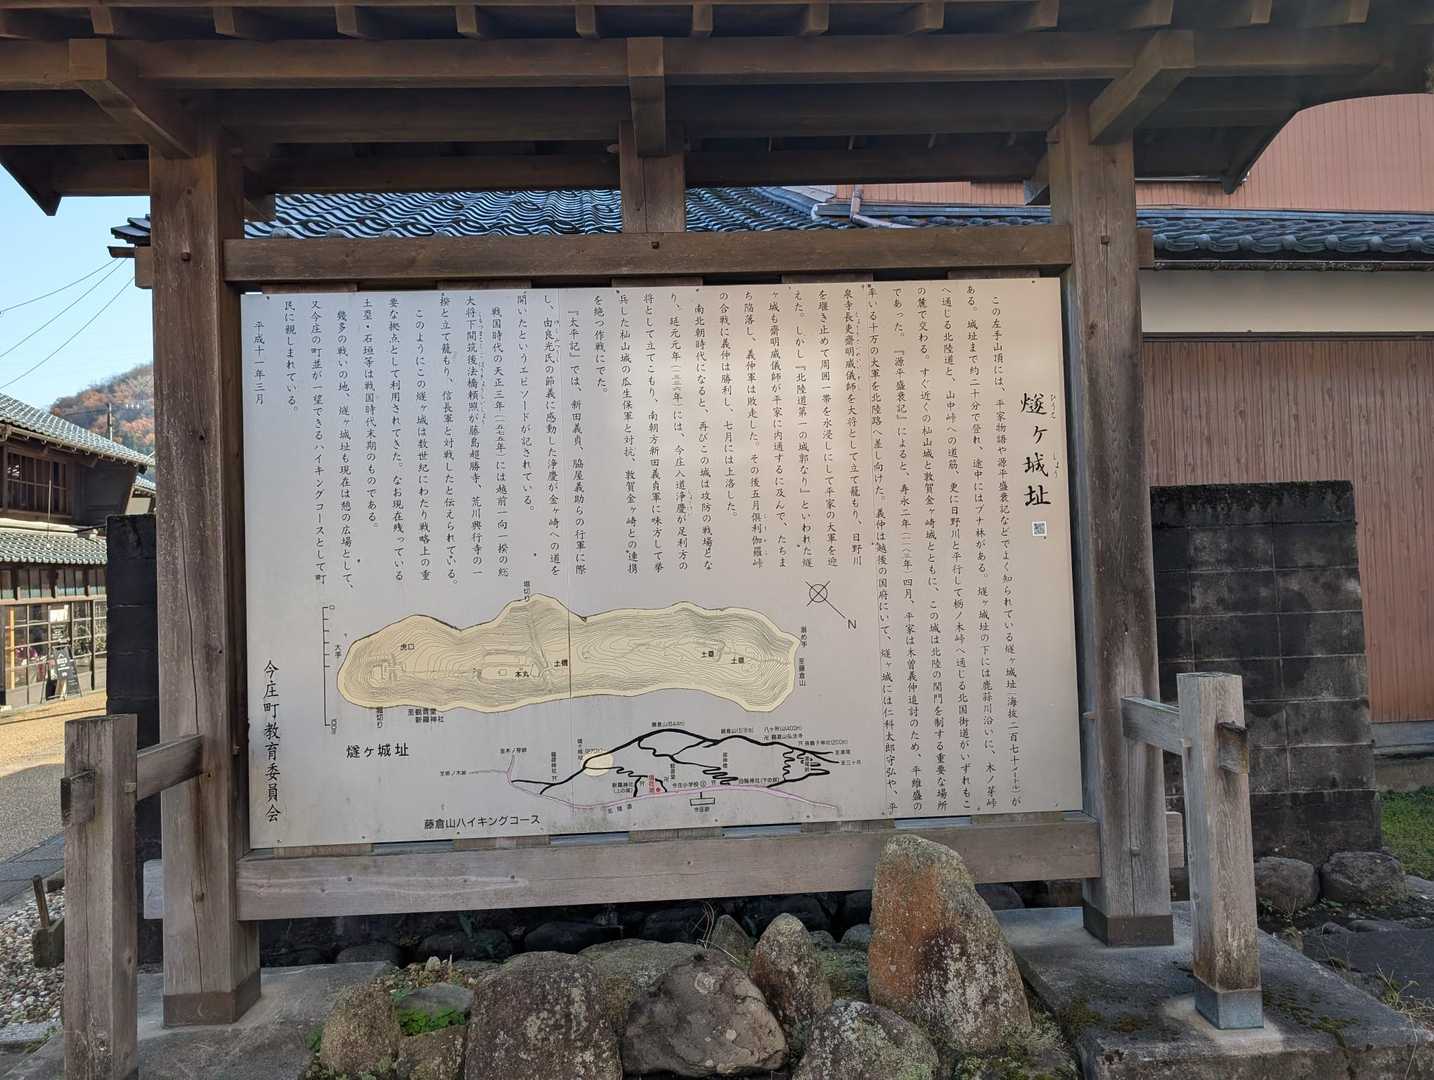 燧ヶ城址
ひうち
じょう
この左手山頂には、平家物語や源平盛衰記などでよく知られている燧ヶ城址(海抜二百七十メートル)が
ある。城址まで約二十分で登れ、途中にはブナ林がある。燧ヶ城址の下には鹿蒜川沿いに、木ノ芽峠
へ通じる北陸道と、山中峠への道筋、更に日野川と平行して栃ノ木峠へ通じる北国街道がいずれもこ
の麓で交わる。すぐ近くの杣山城と敦賀金ヶ崎城とともに、この城は北陸の関門を制する重要な場所
であった。『源平盛衰記』によると、寿永二年(一一八三年)四月、平家は木曽義仲追討のため、平維盛の
率いる十万の大軍を北陸路へ差し向けた。義仲は越後の国府にいて、燧ヶ城には仁科太郎守弘や、平
泉寺長吏齋明威儀師を大将として立て籠もり、日野川
を堰き止めて周囲一帯を水浸しにして平家の大軍を迎
えた。しかし『北陸道第一の城郭なり』といわれた燧
ヶ城も齋明威儀師が平家に内通するに及んで、たちま
ち陥落し、義仲軍は敗走した。その後五月倶利伽羅峠
の合戦に義仲は勝利し、七月には上洛した。
南北朝時代になると、再びこの城は攻防の戦場とな
り、延元元年(一三三六年)には、今庄入道浄慶が足利方の
将として立てこもり、南朝方新田義貞軍に味方して挙
兵した杣山城の瓜生保軍と対抗、敦賀金ヶ崎との連携
を絶つ作戦にでた。
『太平記』では、新田義貞、脇屋義助らの行軍に際
し、由良光氏の節義に感動した浄慶が金ヶ崎への道を
開いたというエピソードが記されている。
戦国時代の天正三年(一五七五年)には越前一向一揆の総
大将下間筑後法橋頼照が藤島超勝寺、荒川興行寺の一
揆と立て籠もり、信長軍と対戦したと伝えられている。
このようにこの燧ヶ城は数世紀にわたり戦略上の重
要な拠点として利用されてきた。なお現在残っている
土塁・石垣等は戦国時代末期のものである。
幾多の戦いの地、燧ヶ城址も現在は憩の広場として、
又今庄の町並が一望できるハイキングコースとして町
民に親しまれている。
平成十一年三月
今庄町教育委員会
堀切り
大手
虎口
本丸
土橋
土塁
土塁
搦め手
至藤倉山
N
堀切り
至観音堂
新羅神社
燧ヶ城址
藤倉山ハイキングコース